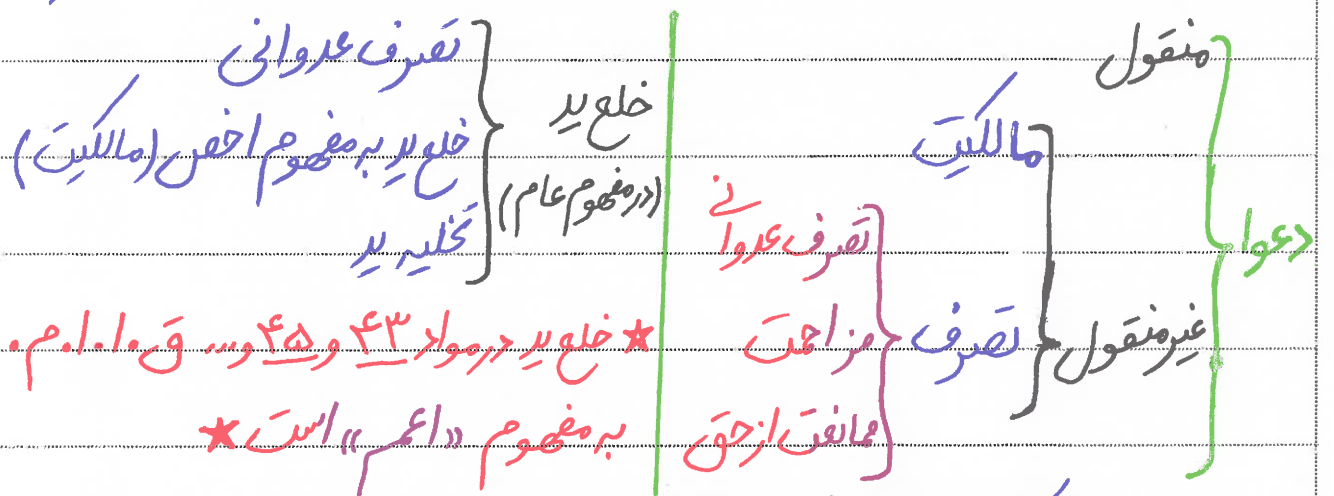 دعوا
منقول
غیرمنقول
مالکیت
تصرف
تصرف عدوانی
مزاحمت
ممانعت از حق
خلع ید
(در مفهوم عام)
تصرف عدوانی
خلع ید به مفهوم اخص (مالکیت)
تخلیه ید
★ خلع ید در مواد ۴۳ و ۴۵ و... ق.ا.ا.م.
به مفهوم «اعم» است ★